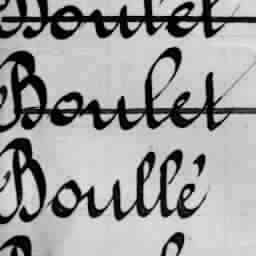 Boulet
Boulet
Boullé